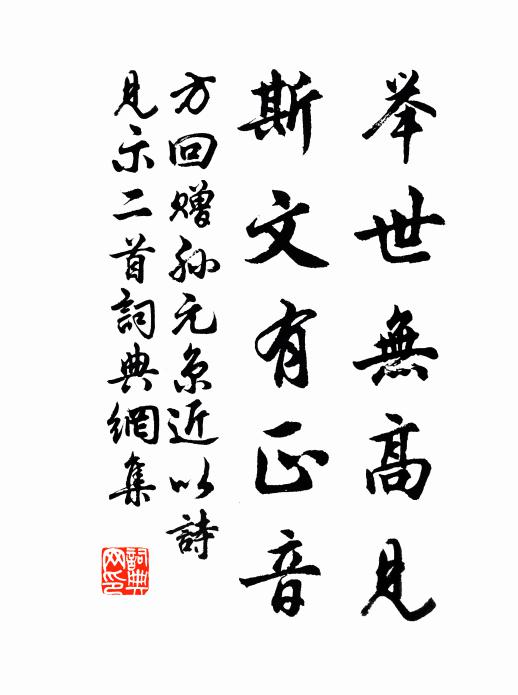 举世無高見
斯文有正音
方回赠孙元京近以詩
見示二首詞典網集
詞典网印